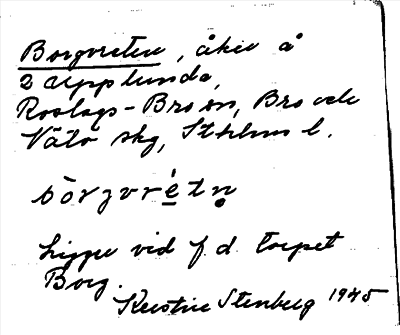 Borgvreten, åker å
2 Upplunda,
Roslags-Bro sn, Bro och
Väto skg, Sthlms l.
bòrgvrétn̥
Ligger vid f.d. torpet
Borg.
Kerstin Stenberg 1945